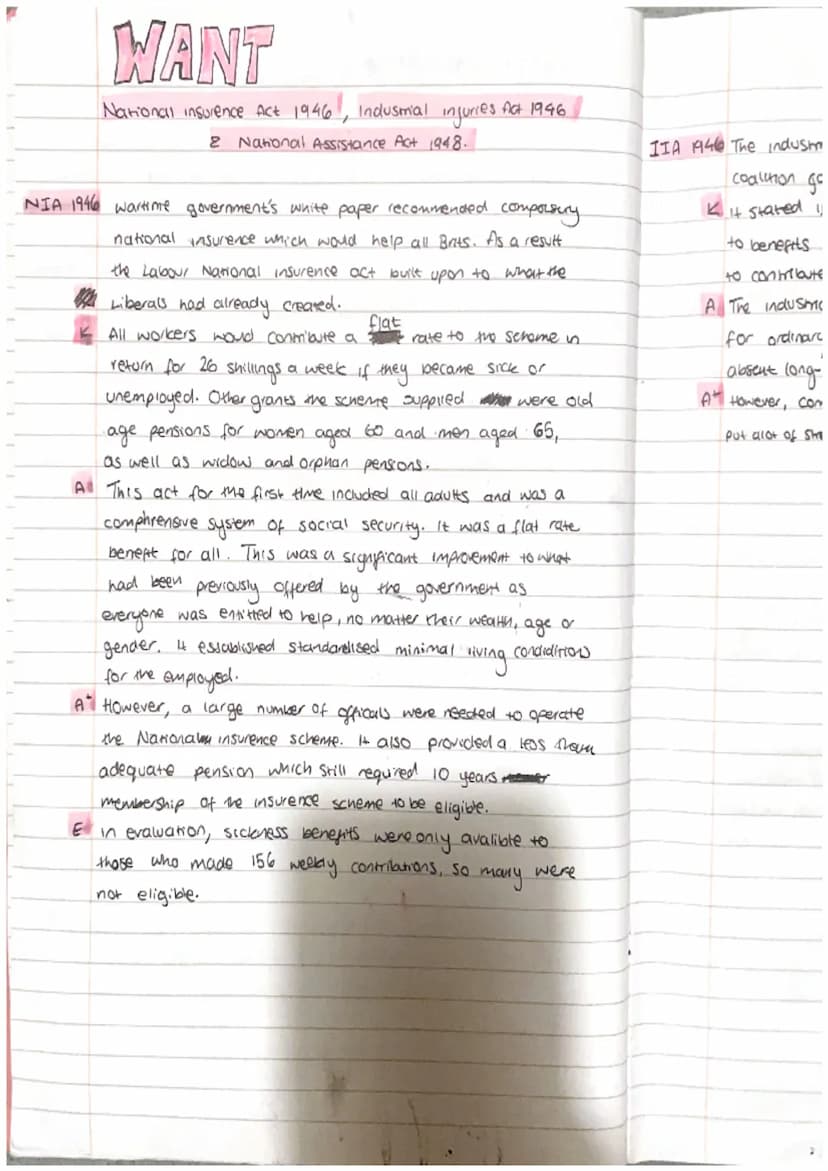 WANT
National insurence Act 1946, Industrial injuries Act 1946
& National Assistance Act 1948.
NIA 1946 wartime government's white paper recommended compolsury
national insurence which would help all Brits. As a result
the Labour National insurence act built upon to what the
Liberals had already created.
K All workers woud contribute a flat rate to the scheme in
return for 26 shillings a week if they became sick or
unemployed. Other grants the scheme supplied were old
age pensions for women aged 60 and men aged 65,
as well as widow and orphan pensions.
A This act for the first time included all adults and was a
comphrensive system of social security. It was a flat rate
benefit for all. This was a significant improvement to what
had been previously offered by the government as
everyone was entitled to help, no matter their wealth, age or
gender. It established standardised minimal living condiditions
for the employed.
A+ However, a large number of officals were needed to operate
the National insurence scheme. It also provided a less than
adequate pension which still required 10 years
membership of the insurence scheme to be eligible.
E In evaluation, sickness benefits were only avalible to
those who made 156 weekly contributions, so many were
not eligible.
IIA 1946 The industr
coalition go
K it stated
to benefits
to contribute
A The industr
for ordinar
absent long-
A+ However, com
put alot of str